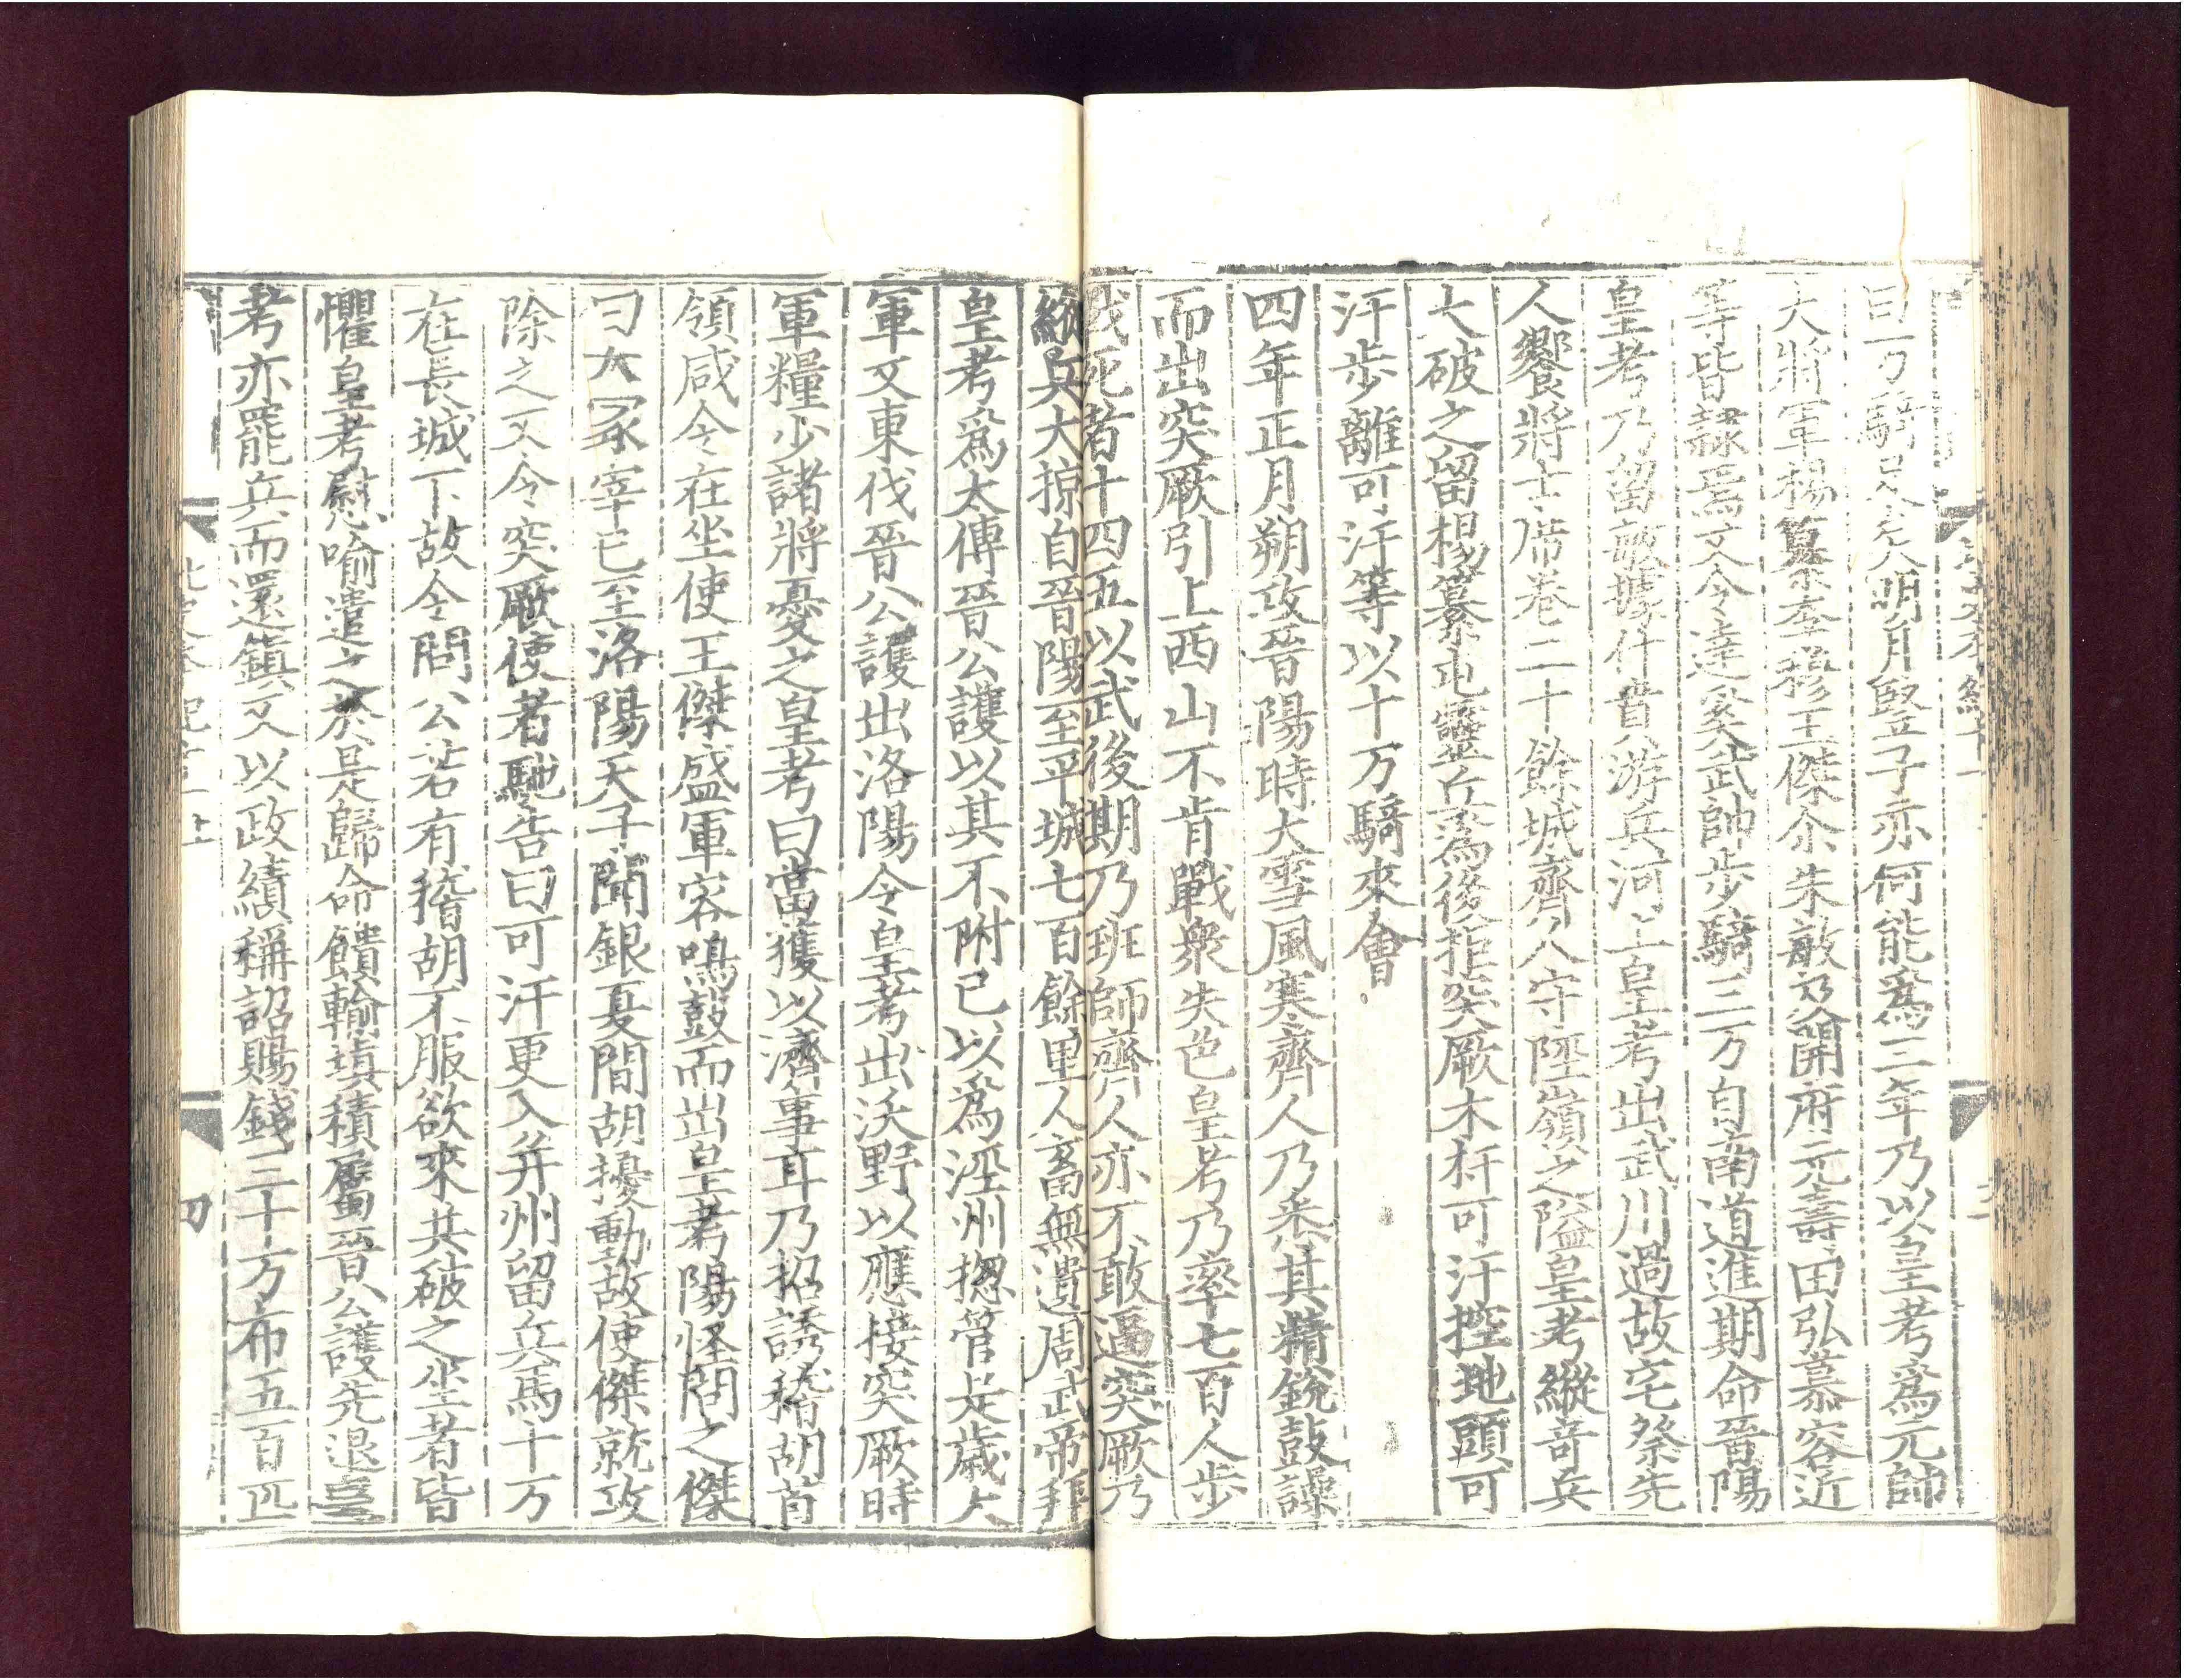 曰一万騎足矣明月豎子亦何能爲三年乃以皇考爲元帥
大將軍楊纂李穆王傑尒朱敏及開府元壽田弘慕容近
等皆隷焉又令達奚武帥步騎三万自南道進期會晉陽
皇考乃留敏據什賁游兵河上皇考出武川過故宅祭先
人饗將士席卷二十餘城齊人守陘嶺之隘皇考縱奇兵
大破之留楊纂屯靈丘爲後拒突厥木杆可汗控地頭可
汗步離可汗等以十万騎來會
四年正月朔攻晉陽時大雪風寒齊人乃悉其精銳鼓譟
而出突厥引上西山不肯戰衆失色皇考乃率七百人步
戰死者十四五以武後期乃班師齊人亦不敢逼突厥乃
縱兵大掠自晉陽至平城七百餘里人畜無遺周武帝拜
皇考爲太傅晉公護以其不附己以爲涇州揔管是歲大
軍又東伐晉公護出洛陽令皇考出沃野以應接突厥時
軍糧少諸將憂之皇考曰當獲以濟事耳乃招誘稽胡首
領咸令在坐使王傑盛軍容鳴鼓而出皇考陽怪問之傑
曰大冢宰已至洛陽天子聞銀夏間胡擾動故使傑就攻
除之又令突厥使者馳告曰可汗更入并州留兵馬十万
在長城下故令問公若有稽胡不服欲來共破之坐者皆
懼皇考慰喻遣之於是歸命饋輸填積屬晉公護先退皇
考亦罷兵而還鎮又以政績稱詔賜錢三十万布五百匹